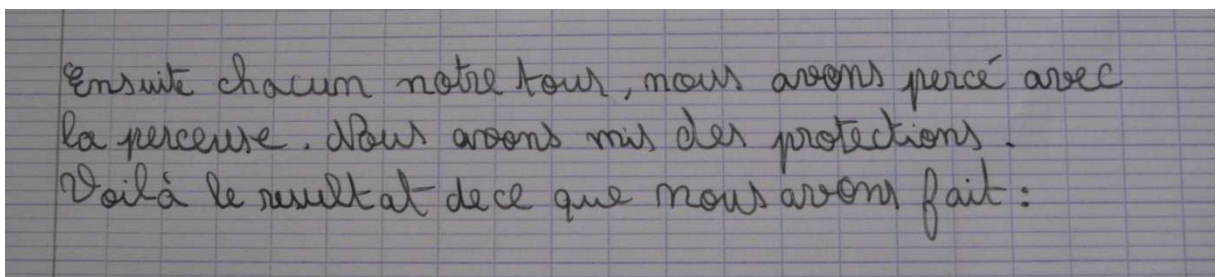 Ensuite chacun notre tour, nous avons percé avec
la perceuse. Nous avons mis des protections.
Voilà le resultat de ce que nous avons fait :